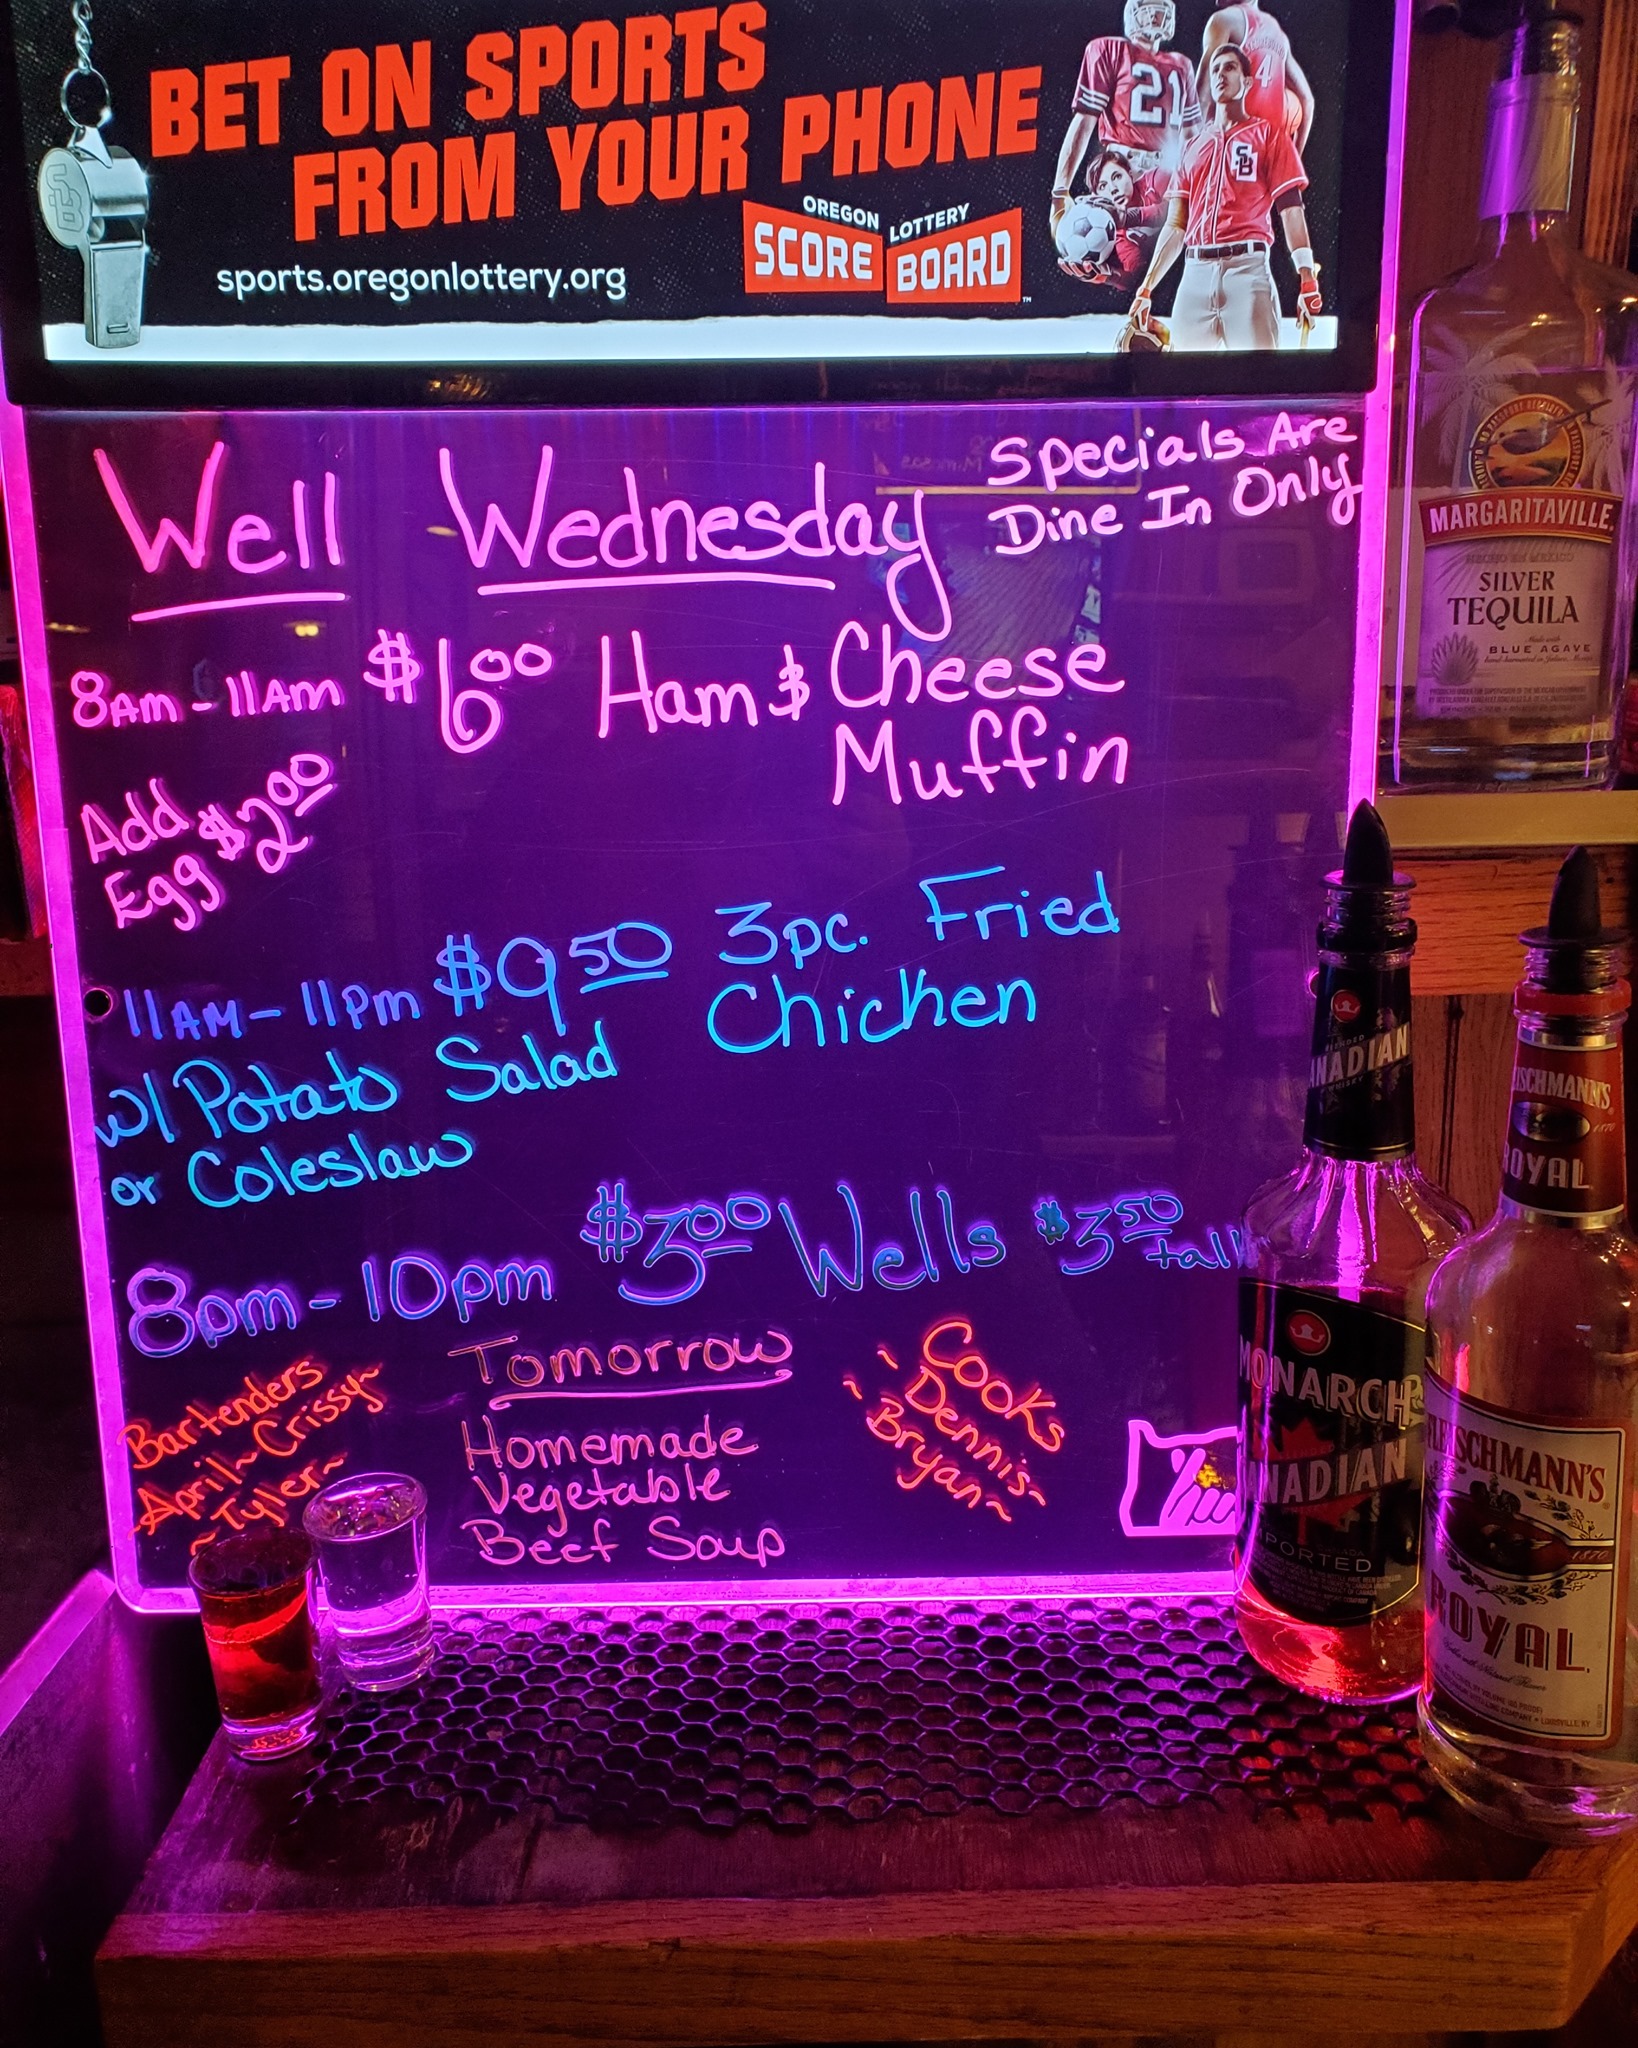 BET ON SPORTS
FROM YOUR PHONE
sports.oregonlottery.org
OREGON LOTTERY
SCORE BOARD
TM
21
4
SB
SB
Well Wednesday
Specials Are
Dine In Only
8AM - 11AM $6.00 Ham & Cheese
Muffin
Add
Egg $2.00
11AM - 11pm $9.50 3pc. Fried
Chicken
w/ Potato Salad
or Coleslaw
8pm - 10pm $3.00 Wells $3.50
tall
Bartenders
~April~Crissy~
~Tyler~
Tomorrow
Homemade
Vegetable
Beef Soup
Cooks
~Dennis~
~Bryan~
MARGARITAVILLE
SILVER
TEQUILA
Made with
BLUE AGAVE
ANADIAN
MONARCH
CANADIAN
IMPORTED
FLEISCHMANN'S
1870
ROYAL
FLEISCHMANN'S
1870
ROYAL